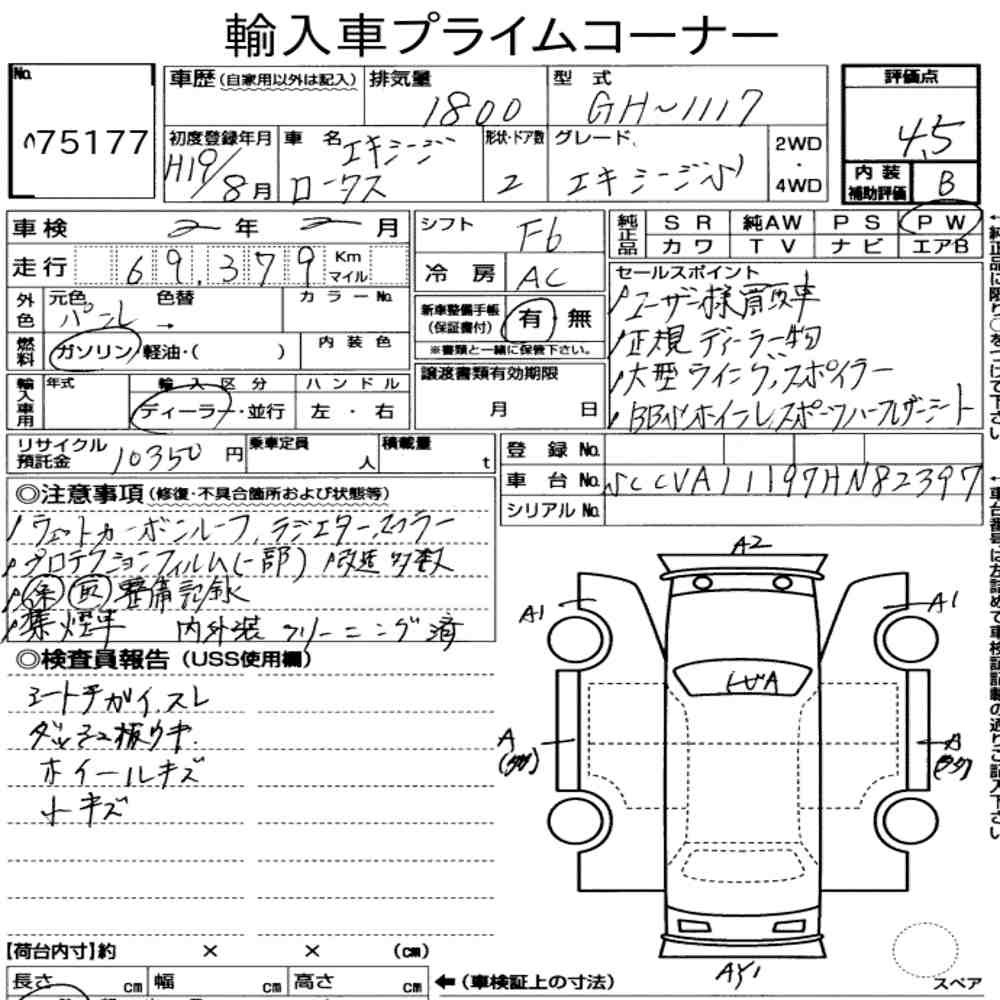 輸入車プライムコーナー
No. 75177
車歴(自家用以外は記入)
排気量 1800
型式 GH~1117
評価点 4.5
内装補助評価 B
初度登録年月 H19/8月
車名 ロータス エキシージ
形状・ドア数 2
グレード エキシージS
2WD・4WD
車検 2年 2月
走行 69,379 Km マイル
シフト F6
冷房 AC
純正品 SR 純AW PS PW
カワ TV ナビ エアB
外色 元色 パープル 色替 → カラーNo.
燃料 ガソリン・軽油・( )
内装色
新車整備手帳(保証書付) 有・無
※書類と一緒に保管下さい。
セールスポイント
ユーザー様買取車
正規ディーラー物
大型ウイング、スポイラー
BBSホイール スポーツハーフレザーシート
輸入車用 年式
輸入区分 ディーラー・並行
ハンドル 左・右
譲渡書類有効期限 月 日
リサイクル預託金 10350円
乗車定員 人
積載量 t
登録No.
車台No. SCCVA11197HN82397
シリアルNo.
◎注意事項(修復・不具合箇所および状態等)
ウェットカーボンルーフ、ラジエター
プロテクションフィルム(一部) 改造多数
整備記録
禁煙車 内外装クリーニング済
◎検査員報告(USS使用欄)
シート手がイ、スレ
ホイールキズ
小キズ
A2
A1
A1
A
A
AY1
【荷台内寸】約 × × (cm)
長さ cm 幅 cm 高さ cm
←(車検証上の寸法)
スペア
↑純正品に限り○をつけて下さい
↑車台番号は左詰めで車検証記載の通りご記入下さい